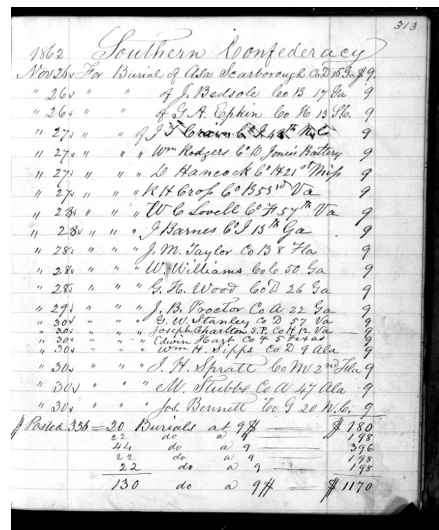 313
1862 Southern Confederacy
Nov 26 For Burial of Asa Scarborough Co D 15 Ga $9.
" 26 " of J. Bedsole Co B 17 Ga 9
" 26 " of G. A. Epkin Co H 13 9
" 27 " " of J Co I 48th 9
" 27 " " " Wm Rodgers Co D Jones Battery 9
" 27 " " " D Hancock Co H 21st Miss 9
" 27 " " " R H Crop Co B 53rd Va 9
" 28 " " " W C Lovell Co F 57th Va 9
" 28 " " " J Barnes Co I 13th Ga 9
" 28 " " " J. M. Taylor Co B 8 Fla 9
" 28 " " " W. Williams Co C 50 Ga 9
" 28 " " " G. H. Wood Co D 26 Ga 9
" 29 " " " J. B. Proctor Co A 22 Ga 9
" 30 " " " G. W. Stanley Co D 57 Va 9
" 30 " " " Joseph Charlton Co H 12 Va 9
" 30 " " " Edwin Hart Co F 5 Texas 9
" 30 " " " Wm H. Sipps Co D 9 Ala 9
" 30 " " " J. H. Spratt Co M 2nd Fla 9
" 30 " " " M. Stubbs Co A 47 Ala 9
" 30 " " " Jos. Bennett Co G 20 N.C. 9
Posted 336 = 20 Burials at 9$ $180
22 do a 9 198
44 do a 9 396
22 do a 9 198
22 do a 9 198
130 do a 9$ $1170